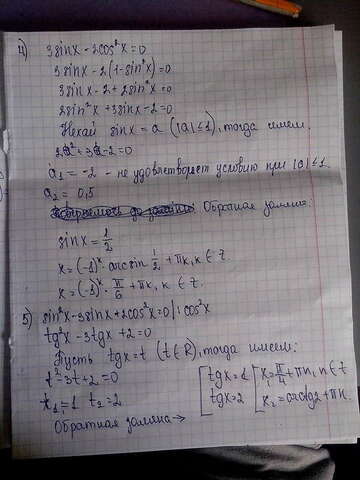 4) 3sinx - 2cos²x = 0
3sinx - 2(1-sin²x) = 0
3sinx - 2 + 2sin²x = 0
2sin²x + 3sinx - 2 = 0
Нехай sinx = a (|a| ≤ 1), тогда имеем.
2a² + 3a - 2 = 0
a₁ = -2 - не удовлетворяет условию при |a| ≤ 1.
a₂ = 0,5
Обратная замена.
sinx = 1/2
x = (-1)ᵏ · arcsin 1/2 + πk, k ∈ Z.
x = (-1)ᵏ · π/6 + πk, k ∈ Z.
5) sin²x - 3sinx + 2cos²x = 0 | : cos²x
tg²x - 3tgx + 2 = 0
Пусть tgx = t (t ∈ R), тогда имеем:
t² - 3t + 2 = 0
t₁ = 1 t₂ = 2
Обратная замена →
[ tgx = 1 [ x₁ = π/4 + πn, n ∈ Z
tgx = 2 x₂ = arctg2 + πn.